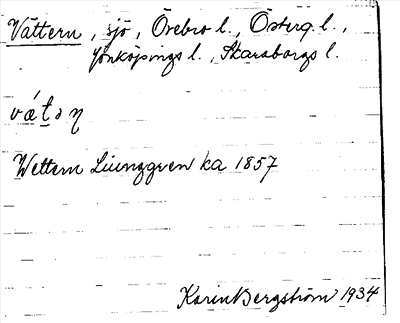 Vättern, sjö, Örebro l., Österg. l.,
Jönköpings l., Skaraborgs l.
Wettern Liunggren ka 1857
Karin Bergström 1934